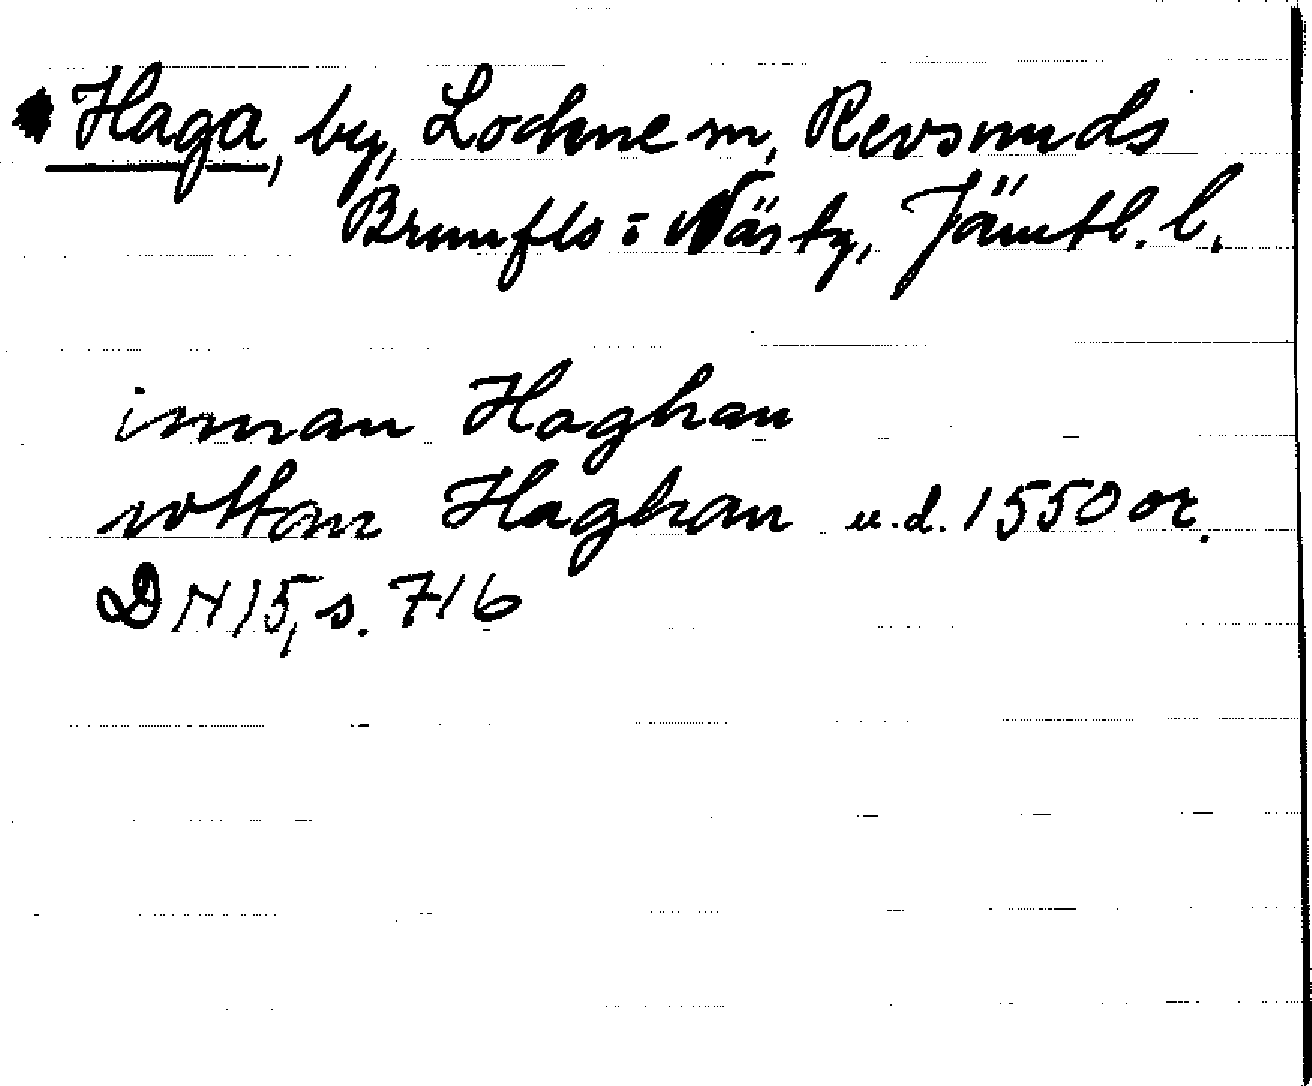 Haga, by, Lockne sn, Revsunds
Brunflo i Näs tg, Jämtl. l.
innan Haghan
wttan Haghan u.d. 1550 or.
DN 15, s. 716